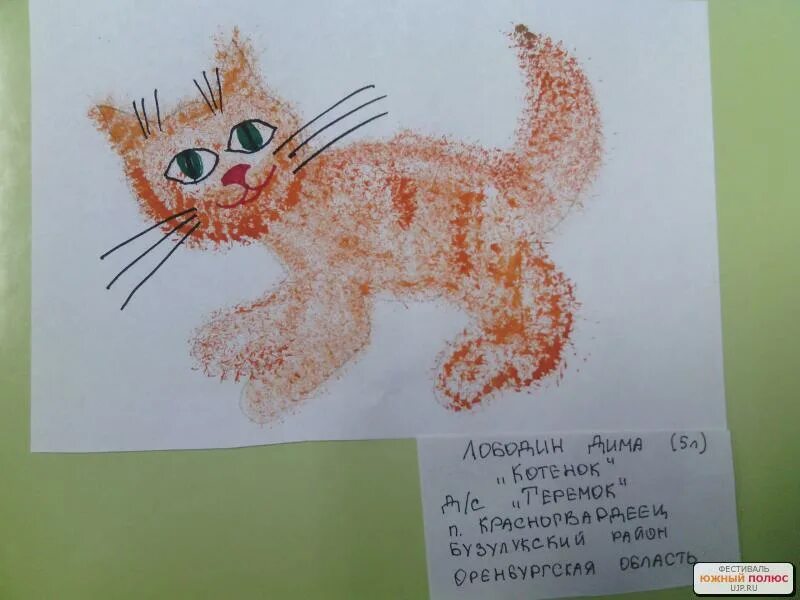 ЛОБОДИН ДИМА (5л)
"КОТЕНОК"
Д/С "ТЕРЕМОК"
п. КРАСНОГВАРДЕЕЦ
БУЗУЛУКСКИЙ РАЙОН
ОРЕНБУРГСКАЯ ОБЛАСТЬ
ФЕСТИВАЛЬ
ЮЖНЫЙ ПОЛЮС
UJP.RU